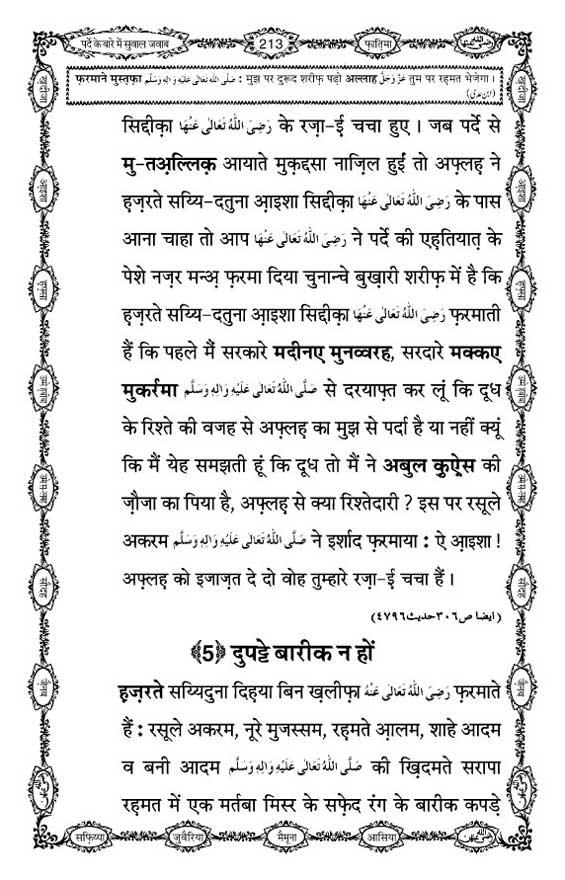 पर्दे के बारे में सुवाल जवाब
213
फ़ातिमा
फ़रमाने मुस्तफ़ा صَلَّى اللهُ تَعَالٰى عَلَيْهِ وَاٰلِهٖ وَسَلَّم : मुझ पर दुरूद शरीफ़ पढ़ो अल्लाह عَزَّ وَجَلَّ तुम पर रहमत भेजेगा ।
(ابن عدی)
सिद्दीक़ा رَضِىَ اللهُ تَعَالٰى عَنْهَا के रज़ा-ई चचा हुए । जब पर्दे से
मु-तअ़ल्लिक़ आयाते मुक़द्दसा नाज़िल हुईं तो अफ़्लह़ ने
ह़ज़रते सय्यि-दतुना आ़इशा सिद्दीक़ा رَضِىَ اللهُ تَعَالٰى عَنْهَا के पास
आना चाहा तो आप رَضِىَ اللهُ تَعَالٰى عَنْهَا ने पर्दे की एह़तियात़ के
पेशे नज़र मन्अ़ फ़रमा दिया चुनान्चे बुख़ारी शरीफ़ में है कि
ह़ज़रते सय्यि-दतुना आ़इशा सिद्दीक़ा رَضِىَ اللهُ تَعَالٰى عَنْهَا फ़रमाती
हैं कि पहले मैं सरकारे मदीनए मुनव्वरह, सरदारे मक्कए
मुकर्रमा صَلَّى اللهُ تَعَالٰى عَلَيْهِ وَاٰلِهٖ وَسَلَّم से दरयाफ़्त कर लूं कि दूध
के रिश्ते की वजह से अफ़्लह़ का मुझ से पर्दा है या नहीं क्यूं
कि मैं येह समझती हूं कि दूध तो मैं ने अबुल क़ुऐ़स की
ज़ौजा का पिया है, अफ़्लह़ से क्या रिश्तेदारी ? इस पर रसूले
अकरम صَلَّى اللهُ تَعَالٰى عَلَيْهِ وَاٰلِهٖ وَسَلَّم ने इर्शाद फ़रमाया : ऐ आ़इशा !
अफ़्लह़ को इजाज़त दे दो वोह तुम्हारे रज़ा-ई चचा हैं ।
(ایضا ص۳۰۶حدیث۴۷۹۶)
﴾5﴿ दुपट्टे बारीक न हों
ह़ज़रते सय्यिदुना दिह़या बिन ख़लीफ़ा رَضِىَ اللهُ تَعَالٰى عَنْهُ फ़रमाते
हैं : रसूले अकरम, नूरे मुजस्सम, रह़मते आ़लम, शाहे आदम
व बनी आदम صَلَّى اللهُ تَعَالٰى عَلَيْهِ وَاٰلِهٖ وَسَلَّم की ख़िदमते सरापा
रह़मत में एक मर्तबा मिस्र के सफ़ेद रंग के बारीक कपड़े
सफ़िय्या
जुवैरिया
मैमूना
आसिया